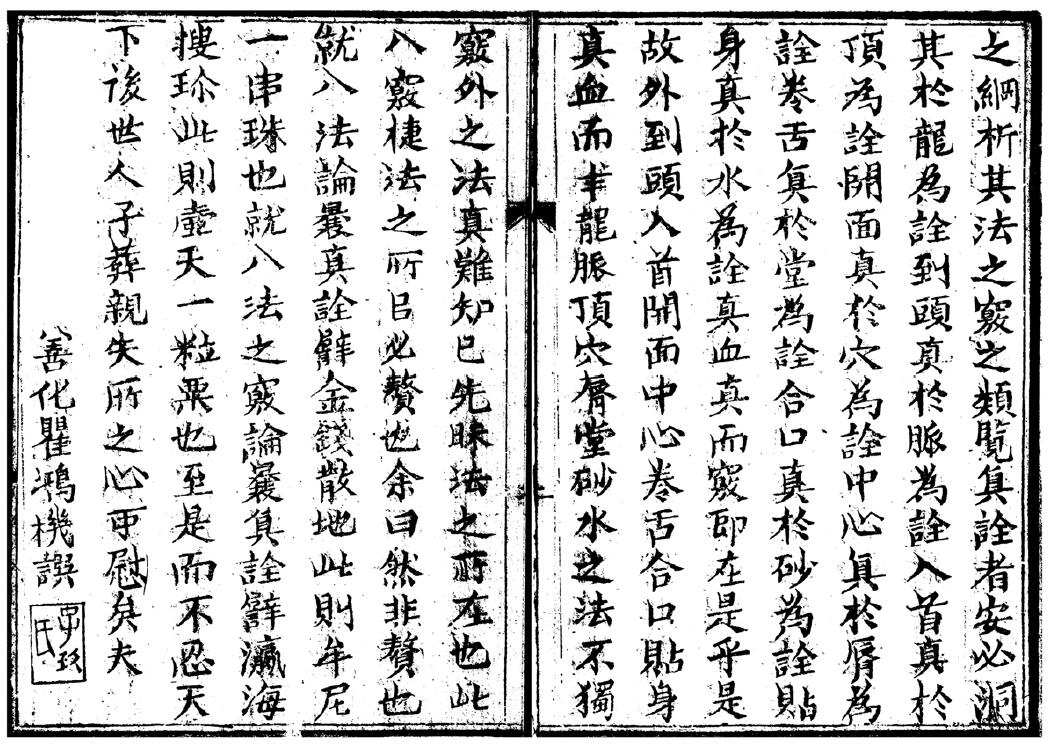 之綱析其法之竅之類覽真詮者安必洞
其於龍為詮到頭真於脈為詮入首真於
頂為詮開面真於穴為詮中心真於脣為
詮卷舌真於堂為詮合口真於砂為詮貼
身真於水為詮真血真而竅即在是乎是
故外到頭入首開面中心卷舌合口貼身
真血而求龍脈頂穴脣堂砂水之法不獨
竅外之法真難知已先昧法之所在也此
八竅楗法之所吕必贅也余曰然非贅也
就八法論曩真詮辟金錢散地此則牟尼
一串珠也就八法之竅論曩真詮辟瀛海
搜珍此則壺天一粒粟也至是而不忍天
下後世人子葬親失所之心可慰矣夫
公善化瞿鴻機譔
氏